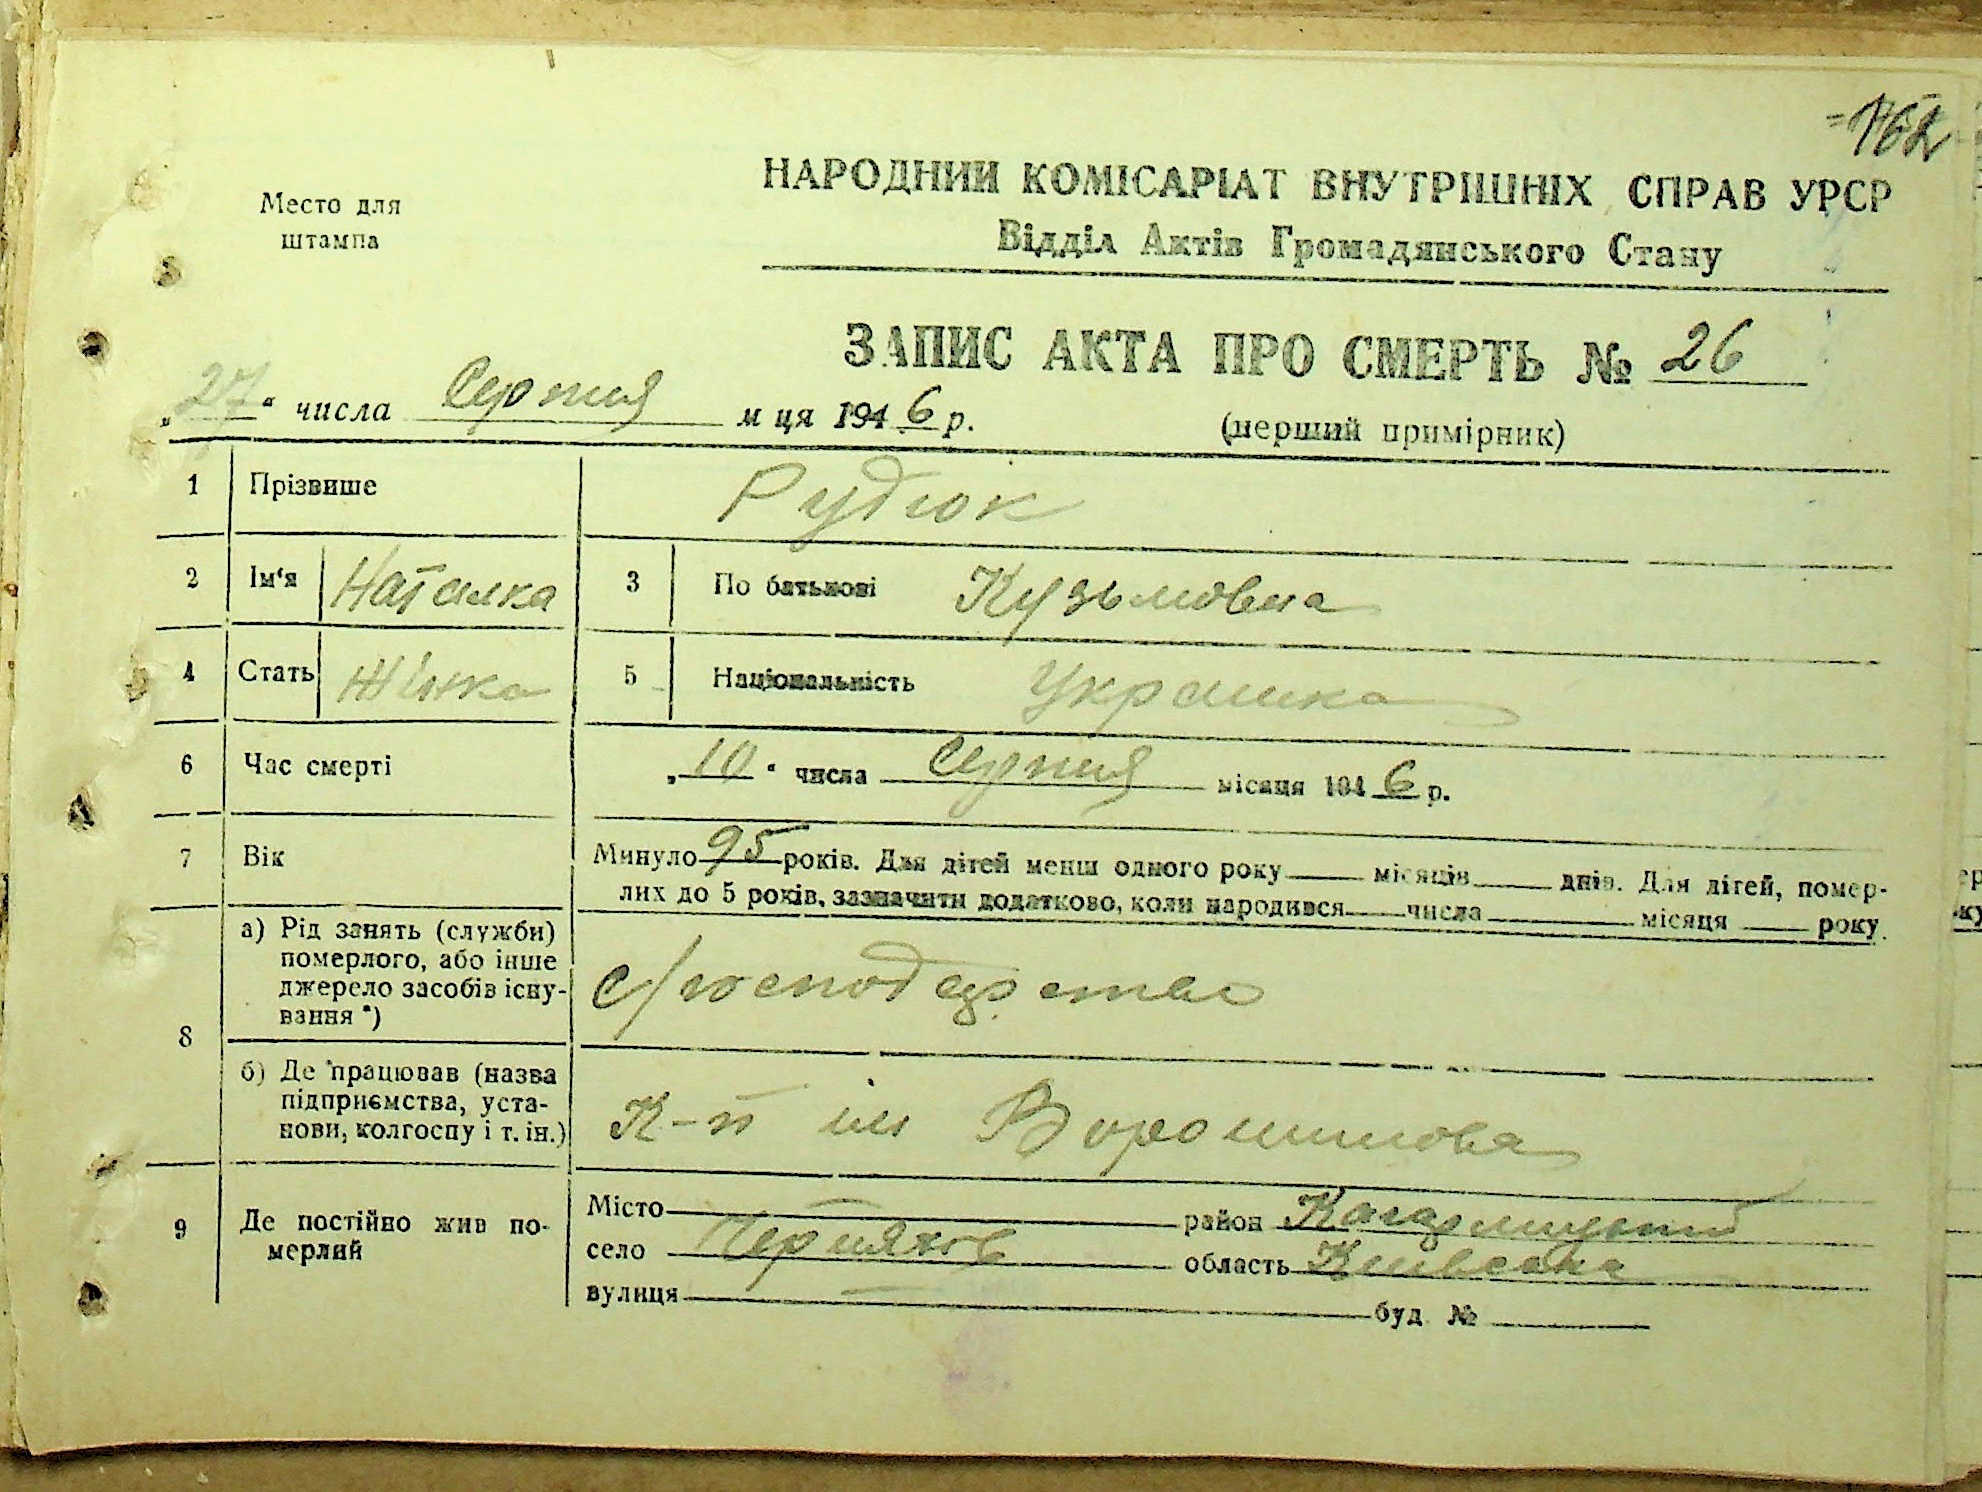 162
Место для
штампа
НАРОДНИЙ КОМІСАРІАТ ВНУТРІШНІХ СПРАВ УРСР
Відділ Актів Громадянського Стану
ЗАПИС АКТА ПРО СМЕРТЬ № 26
„27“ числа Серпня м ця 1946 р.
(перший примірник)
1 Прізвише Рудюк
2 Ім‘я Наталка 3 По батькові Кузьмовна
4 Стать Жінка 5 Національність Украинка
6 Час смерті „10“ числа Серпня місяця 1946 р.
7 Вік Минуло 95 років. Для дітей менш одного року місяців днів. Для дітей, помер-
лих до 5 років, зазначити додатково, коли народився числа місяця року
8 а) Рід занять (служби)
померлого, або інше
джерело засобів існу-
вання *)
с/господарство
б) Де працював (назва
підприємства, уста-
нови, колгоспу і т. ін.)
К-п ім Ворошилова
9 Де постійно жив по-
мерлий
Місто район Кагарлицький
село Черняхов область Киівська
вулиця буд №